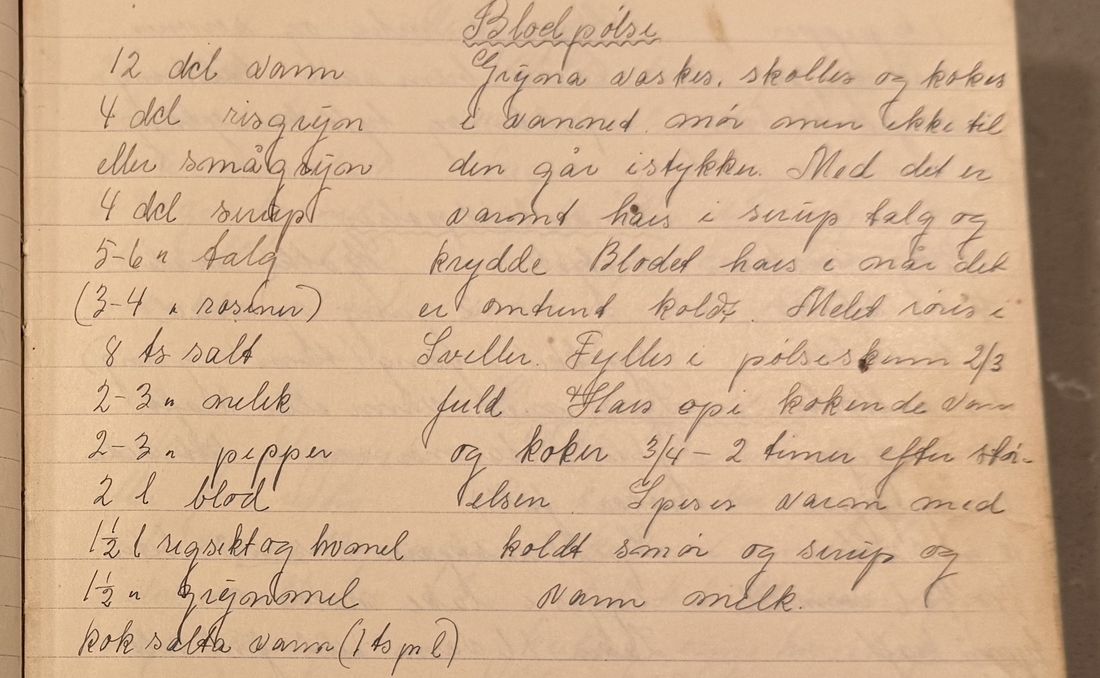 Blodpølse
12 dcl vann
4 dcl risgrýn
eller smågrýn
4 dcl serup
5-6 " talg
(3-4 " rosiner)
8 ts salt
2-3 " nelik
2-3 " pepper
2 l blod
1½ l regsikt og hvmel
1½ " grýnmel
kok salta vann (1 ts pr l)
Grýna vaskes, skolles og kokes
i vannet mør men ikke til
den går istykker. Med det er
varmt haes i serup talg og
krydde Blodet haes i når det
er omtrent koldt. Melet røres i
Sveller. Fylles i pølseskinn 2/3
fuld. Haes opi kokende vann
og koker 3/4 - 2 timer efter stør-
elsen Spises varm med
koldt smør og serup og
varm melk.